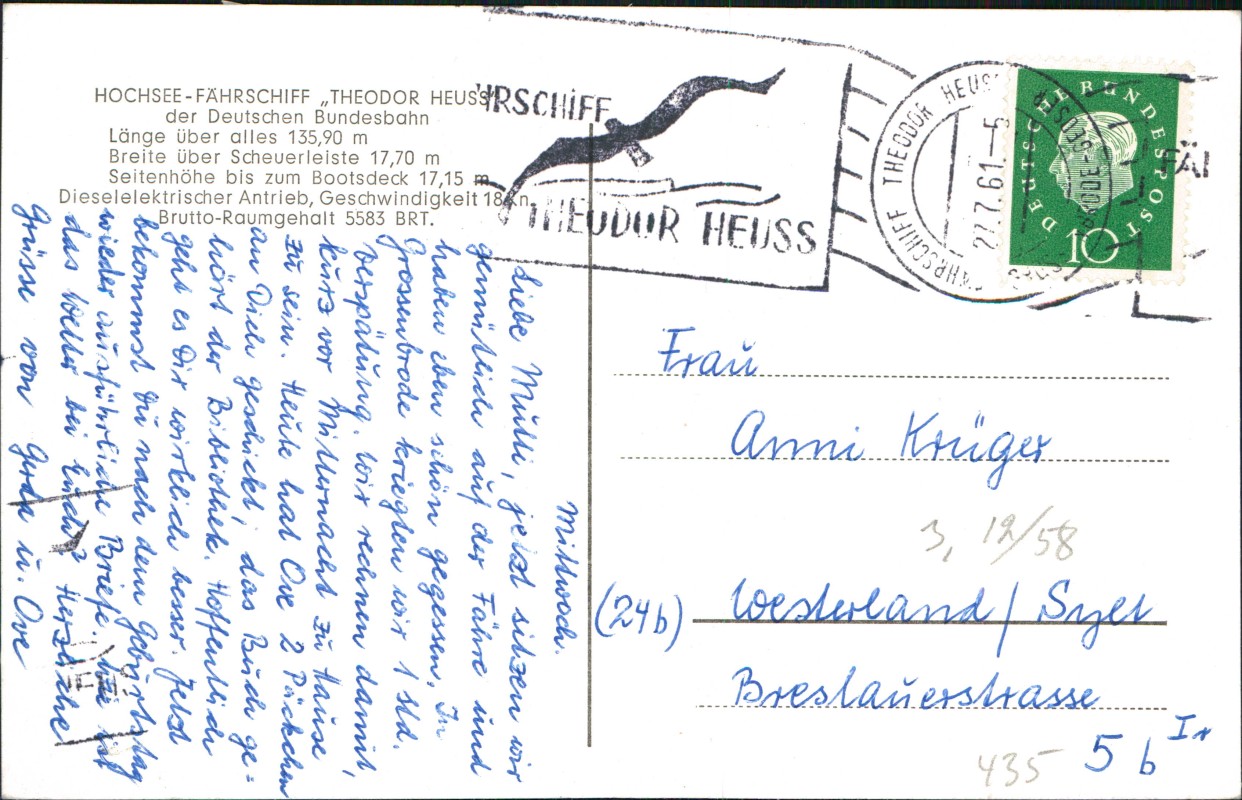 HOCHSEE-FÄHRSCHIFF „THEODOR HEUSS"
der Deutschen Bundesbahn
Länge über alles 135,90 m
Breite über Scheuerleiste 17,70 m
Seitenhöhe bis zum Bootsdeck 17,15 m
Dieselelektrischer Antrieb, Geschwindigkeit 18 Kn.
Brutto-Raumgehalt 5583 BRT.
HRSCHIFF
THEODOR HEUSS
FÄHRSCHIFF THEODOR HEUSS
27.7.61.-5
DEUTSCHE BUNDESPOST
10
FÄH
Mittwoch.
Liebe Mutti, jetzt sitzen wir
gemütlich auf der Fähre und
haben eben schön gegessen. In
Grossenbrode kriegten wir 1 Std.
Verspätung. Wir rechnen damit,
kurz vor Mitternacht zu Hause
zu sein. Heute hat Ove 2 Päckchen
an Dich geschickt, das Buch ge=
hört der Bibliothek. Hoffentlich
geht es Dir wirklich besser. Jetzt
bekommst Du nach dem Geburtstag
wieder ausführliche Briefe. Wie ist
das Wetter bei Euch? Herzliche
Grüsse von Gerda u. Ove
Frau
Anni Krüger
3, 12/58
(24b) Westerland/Sylt
Breslauerstrasse
5 b I r
435